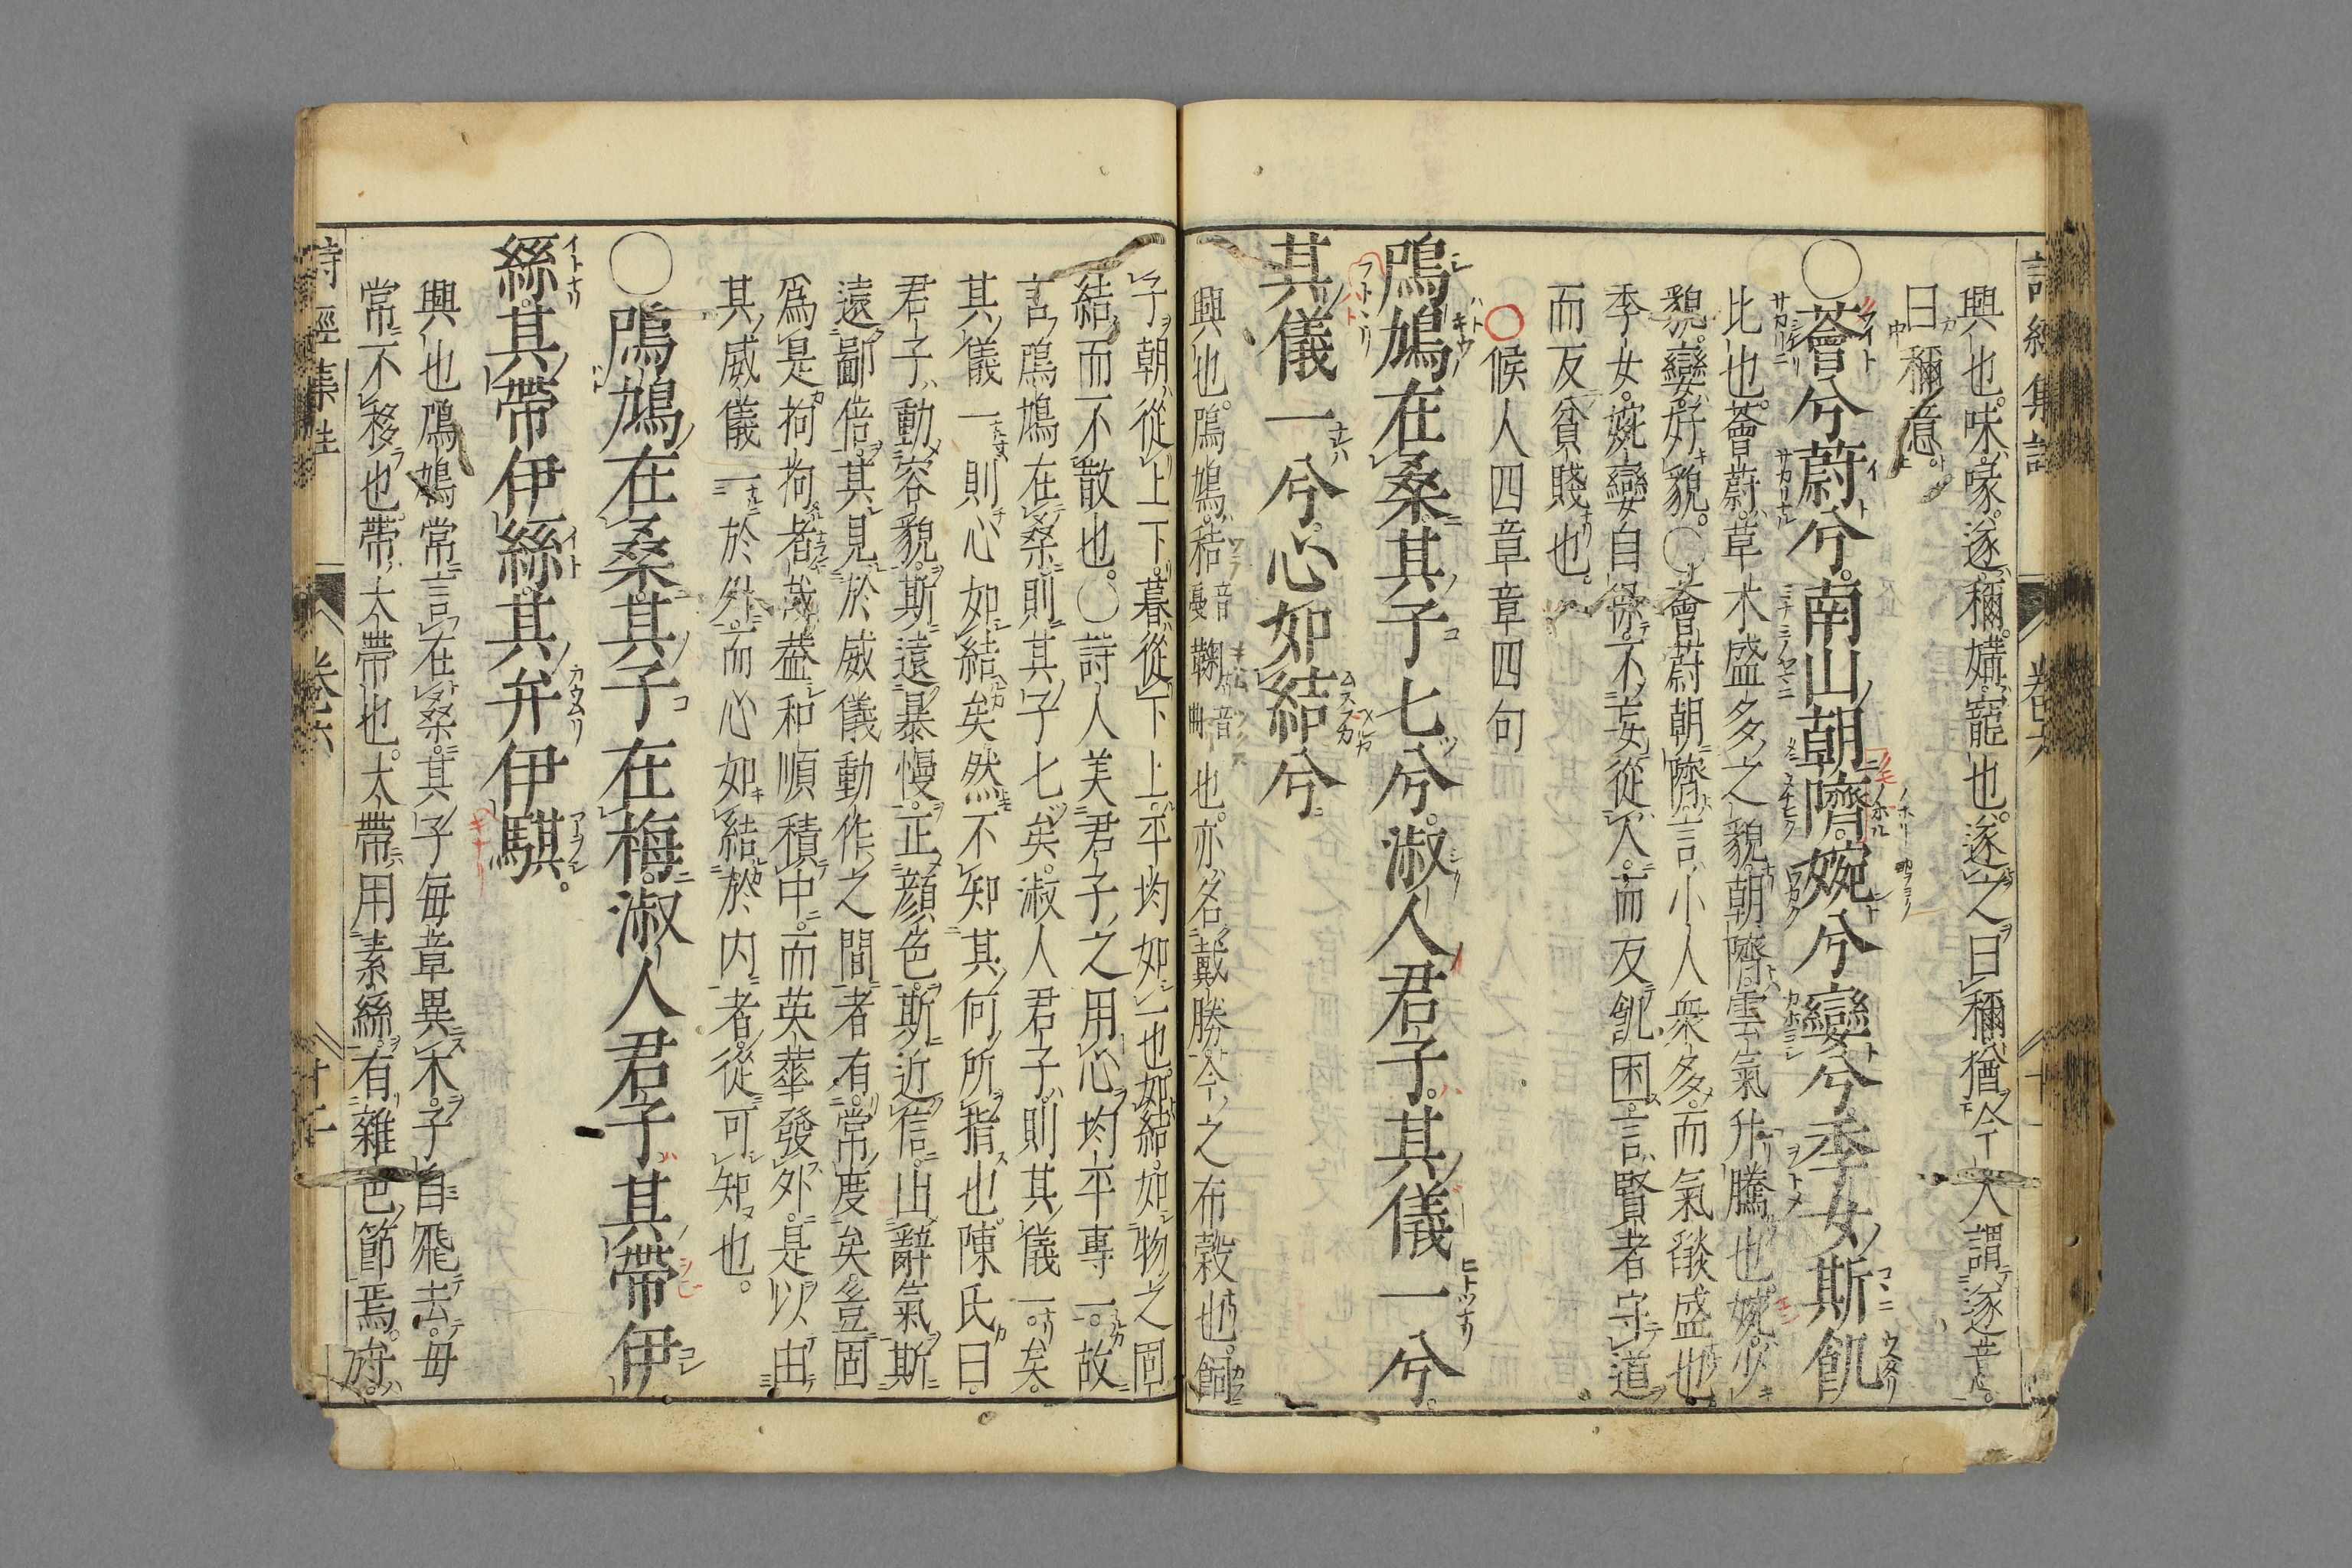 興也咮喙遂稱媾寵也遂之曰稱猶今人謂遂意
曰稱意
○薈兮蔚兮南山朝隮婉兮孌兮季女斯飢
比也薈蔚草木盛多之貌朝隮雲氣升騰也婉少
貌孌好貌○薈蔚朝隮言小人衆多而氣燄盛也
季女婉孌自保不妄從人而反飢困言賢者守道
而反貧賤也
○候人四章章四句
鳲鳩在桑其子七兮淑人君子其儀一兮
其儀一兮心如結兮
興也鳲鳩秸音戛鞠音匊也亦名戴勝今之布穀也飼
子朝從上下暮從下上平均如一也如結如物之固
結而不散也○詩人美君子之用心均平專一故
言鳲鳩在桑則其子七矣淑人君子則其儀一矣
其儀一則心如結矣然不知其何所指也陳氏曰
君子動容貌斯遠暴慢正顔色斯近信出辭氣斯
遠鄙倍其見於威儀動作之間者有常度矣豈固
爲是拘拘者哉葢和順積中而英華發外是以由
其威儀一於外而心如結於内者從可知也
○鳲鳩在桑其子在梅淑人君子其帶伊
絲其帶伊絲其弁伊騏
興也鳲鳩常言在桑其子毎章異木子自飛去母
常不移也帶大帶也大帶用素絲有雜色飾焉弁
詩經集註 卷六